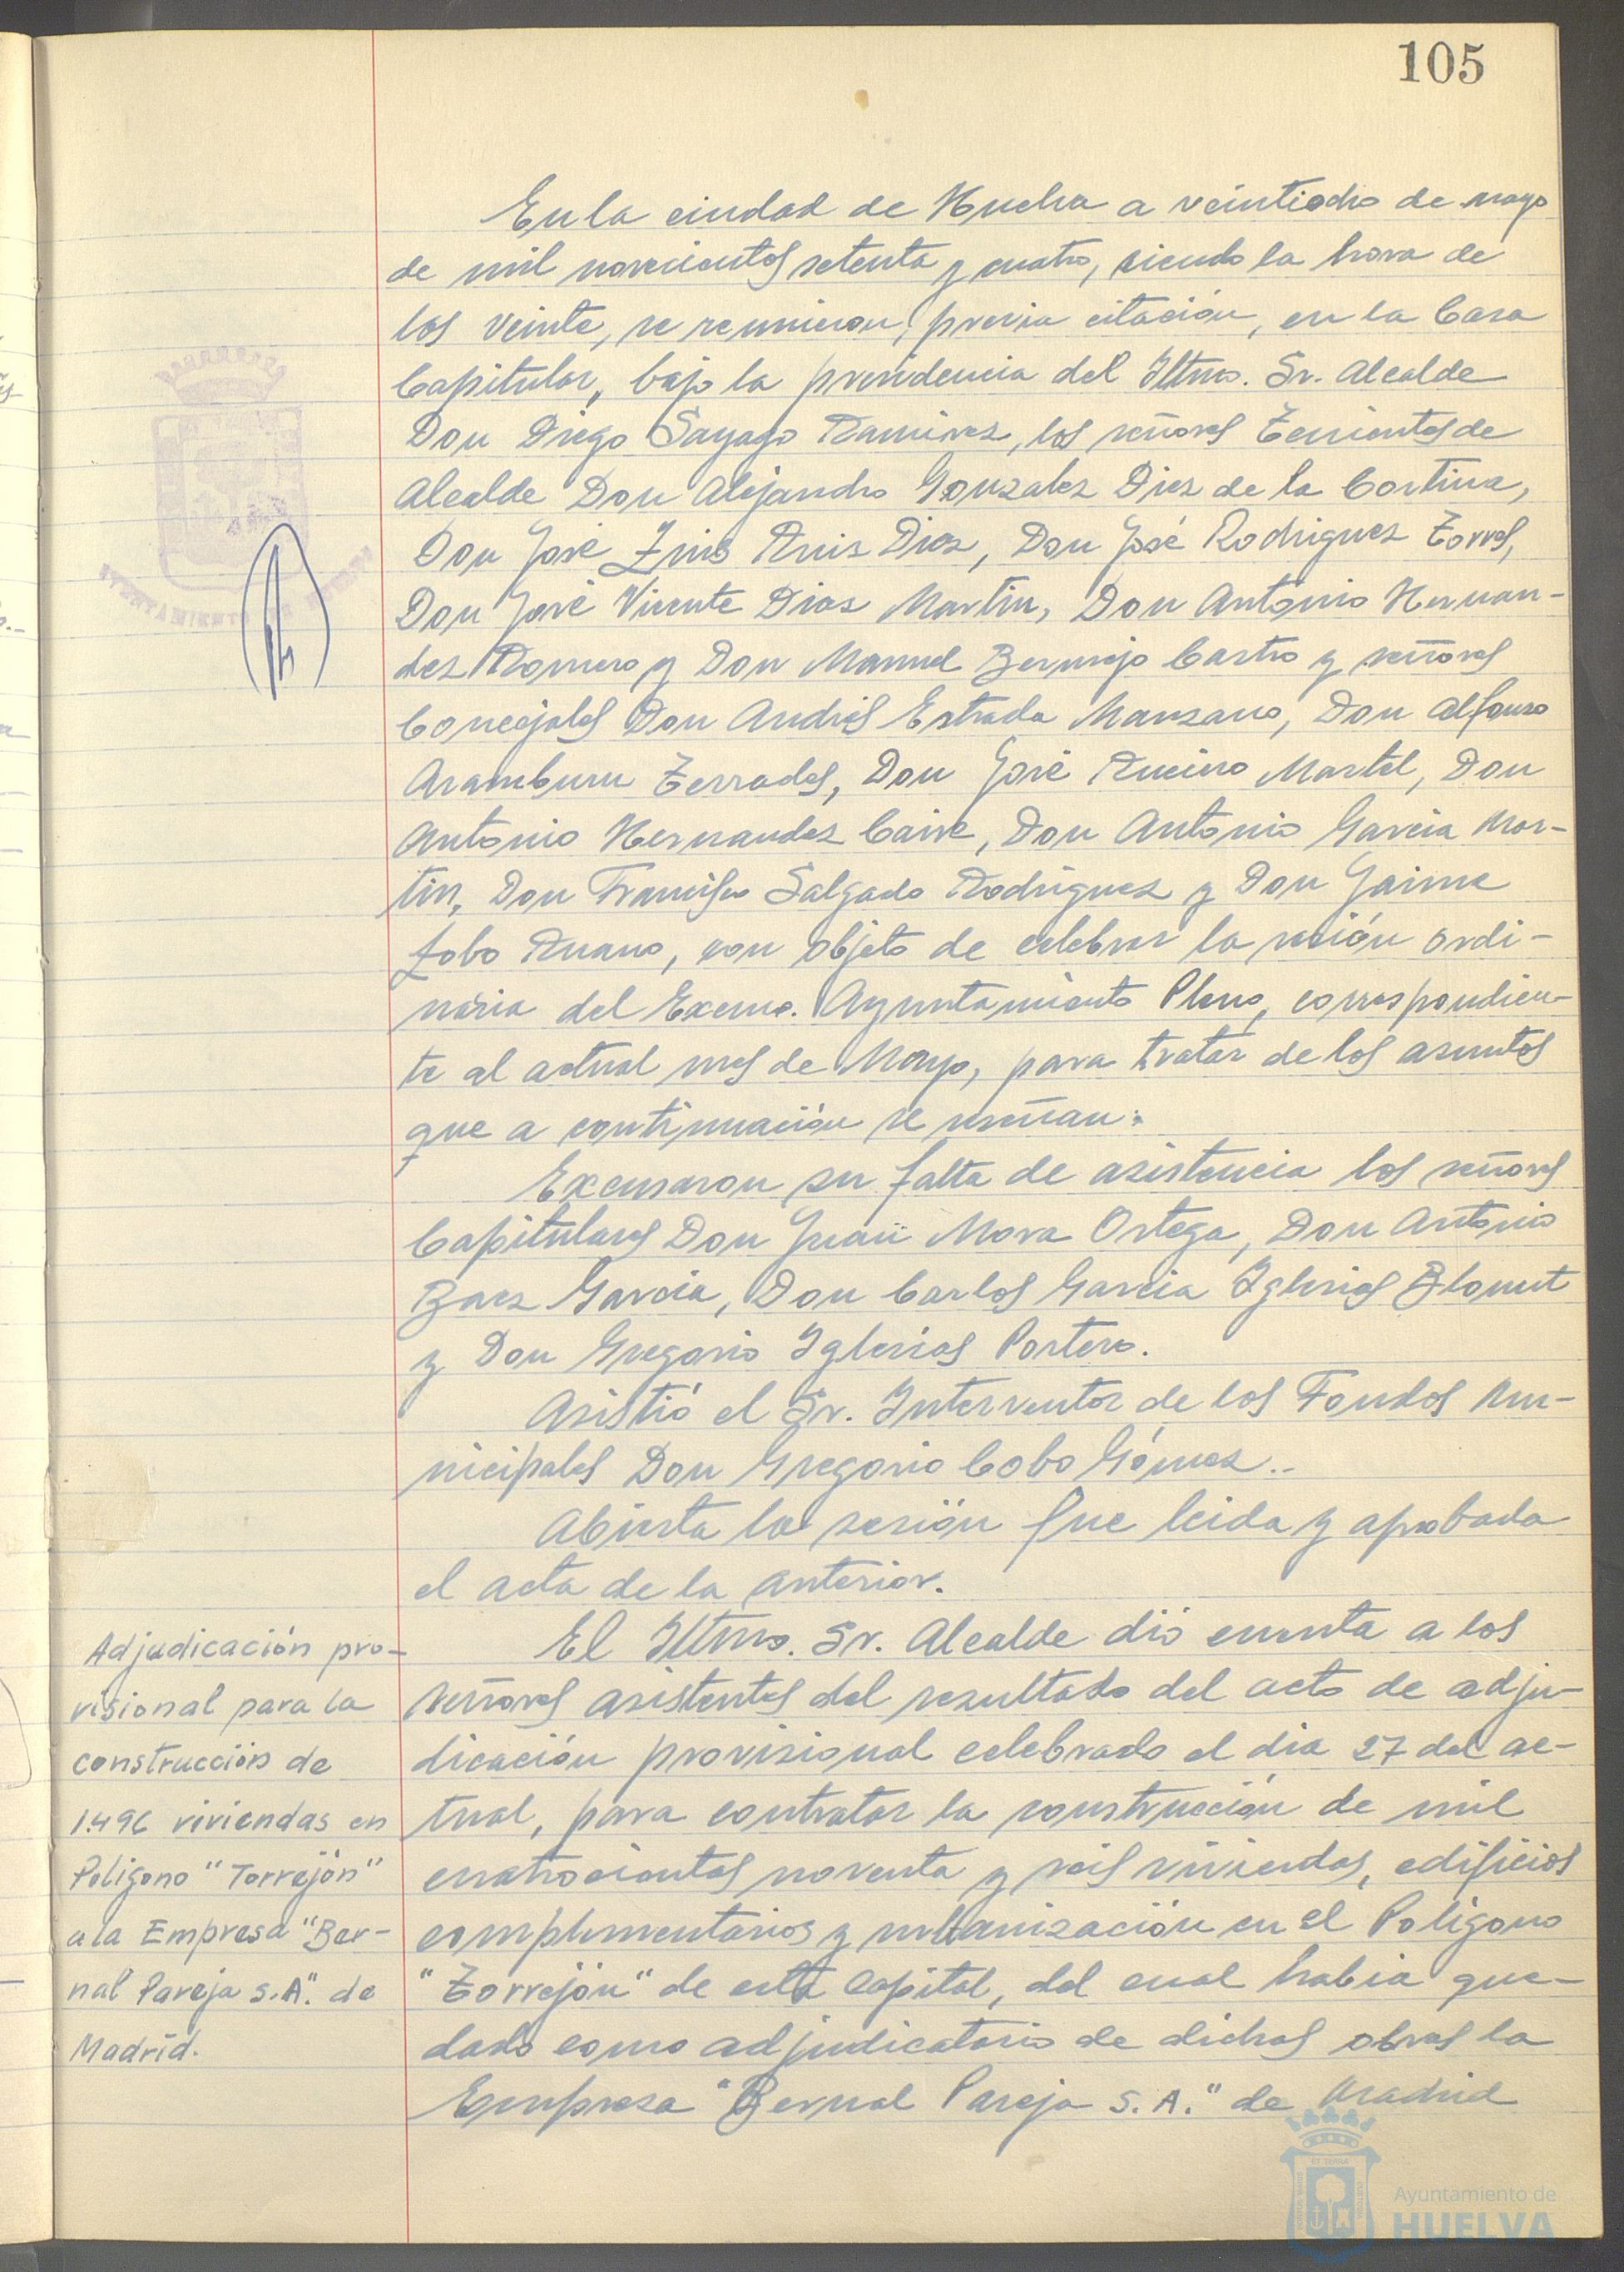 105
En la ciudad de Huelva a veintiocho de mayo
de mil novecientos setenta y cuatro, siendo la hora de
las veinte, se reunieron, previa citación, en la Casa
Capitular, bajo la presidencia del Iltmo. Sr. Alcalde
Don Diego Sayago Ramirez, los señores Tenientes de
Alcalde Don Alejandro Gonzalez Diez de la Cortina,
Don José Luis Ruiz Diaz, Don José Rodriguez Torres,
Don José Vicente Dias Martin, Don Antonio Hernan-
dez Romero y Don Manuel Bermejo Castro y señores
Concejales Don Andrés Estrada Manzano, Don Alfonso
Aramburu Terrades, Don José Rucino Martel, Don
Antonio Hernandez Caire, Don Antonio Garcia Mar-
tin, Don Francisco Salgado Rodriguez y Don Jaime
Lobo Ruano, con objeto de celebrar la sesión ordi-
naria del Excmo. Ayuntamiento Pleno, correspondien-
te al actual mes de Mayo, para tratar de los asuntos
que a continuación se reseñan:
Excusaron su falta de asistencia los señores
Capitulares Don Juan Mora Ortega, Don Antonio
Baez Garcia, Don Carlos Garcia Iglesias
y Don Gregorio Iglesias Portero.
Asistió el Sr. Interventor de los Fondos Mu-
nicipales Don Gregorio Cobo Gómez.-
Abierta la sesión fue leida y aprobada
el acta de la anterior.
Adjudicación pro-
visional para la
construcción de
1.496 viviendas en
Poligono "Torrejón"
a la Empresa "Ber-
nal Pareja S.A." de
Madrid.
El Iltmo. Sr. Alcalde dió cuenta a los
señores asistentes del resultado del acto de adju-
dicación provisional celebrado el dia 27 del ac-
tual, para contratar la construcción de mil
cuatrocientas noventa y seis viviendas, edificios
complementarios y urbanización en el Poligono
"Torrejón" de esta Capital, del cual habia que-
dado como adjudicatario de dichas obras la
Empresa "Bernal Pareja S.A." de Madrid
Ayuntamiento de
HUELVA